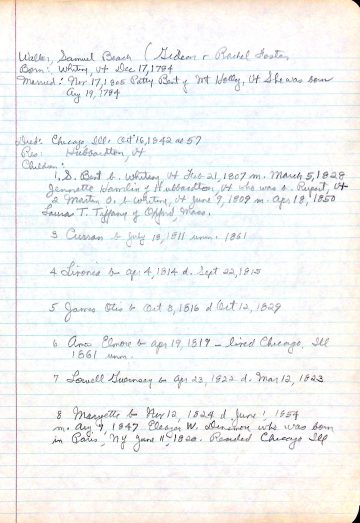 Walker, Samuel Beach (Gideon & Rachel Foster
Born: Whiting, Vt Dec 17, 1784
Married: Nov 17, 1805 Patty Bent of Mt Holly, Vt She was born
Aug 19, 1784
Died: Chicago, Ill. Oct 16, 1842 ae 57
Res: Hubbardton, Vt
Children:
1, S. Bent b. Whiting, Vt Feb 21, 1807 m. March 5, 1828
Jennette Hamlin of Hubbardton, Vt who was b. Rupert, Vt
2 Martin O. b Whiting, Vt June 9, 1809 m. Apr 18, 1850
Laura T. Tiffany of Oxford, Mass.
3 Curran b July 18, 1811 unm. 1861
4 Livonia b Apr 4, 1814 d. Sept 22, 1815
5 James Otis b Oct 8, 1816 d Oct 12, 1829
6 Elmore b Apr 19, 1819 – lived Chicago, Ill
1861 unm.
7 Lowell Guernsey b Apr 23, 1822 d. Mar 12, 1823
8 Maryette b Nov 12, 1824 d June 1, 1854
m. Aug 9, 1847 Eleazer W. who was born
in Paris, NY June 11, 1820. Resided Chicago Ill